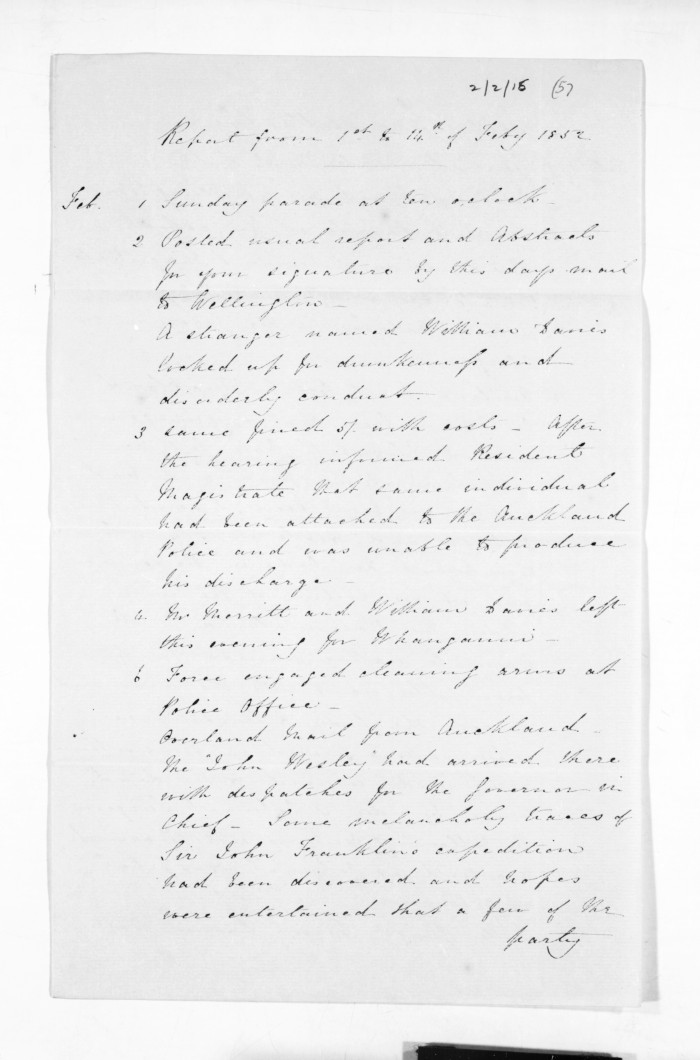 2/2/15 (57
Report from 1st to 14th of Feby 1852
Feb. 1 Sunday parade at ten o,clock
2 Posted usual report and Abstracts
for your signature by this days mail
to Wellington —
A stranger named William Davies
locked up for drunkenness and
disorderly conduct —
3 same fined 5/ with costs — After
the hearing informed Resident
Magistrate that same individual
had been attached to the Auckland
Police and was unable to produce
his discharge —
4. Mr Morritt and William Davies left
this evening for Whanganui —
6 Force engaged cleaning arms at
Police Office —
Overland Mail from Auckland —
The "John Wesley" had arrived there
with despatches for the Governor in
Chief — Some melancholy traces of
Sir John Franklin's expedition
had been discovered and hopes
were entertained that a few of the
party